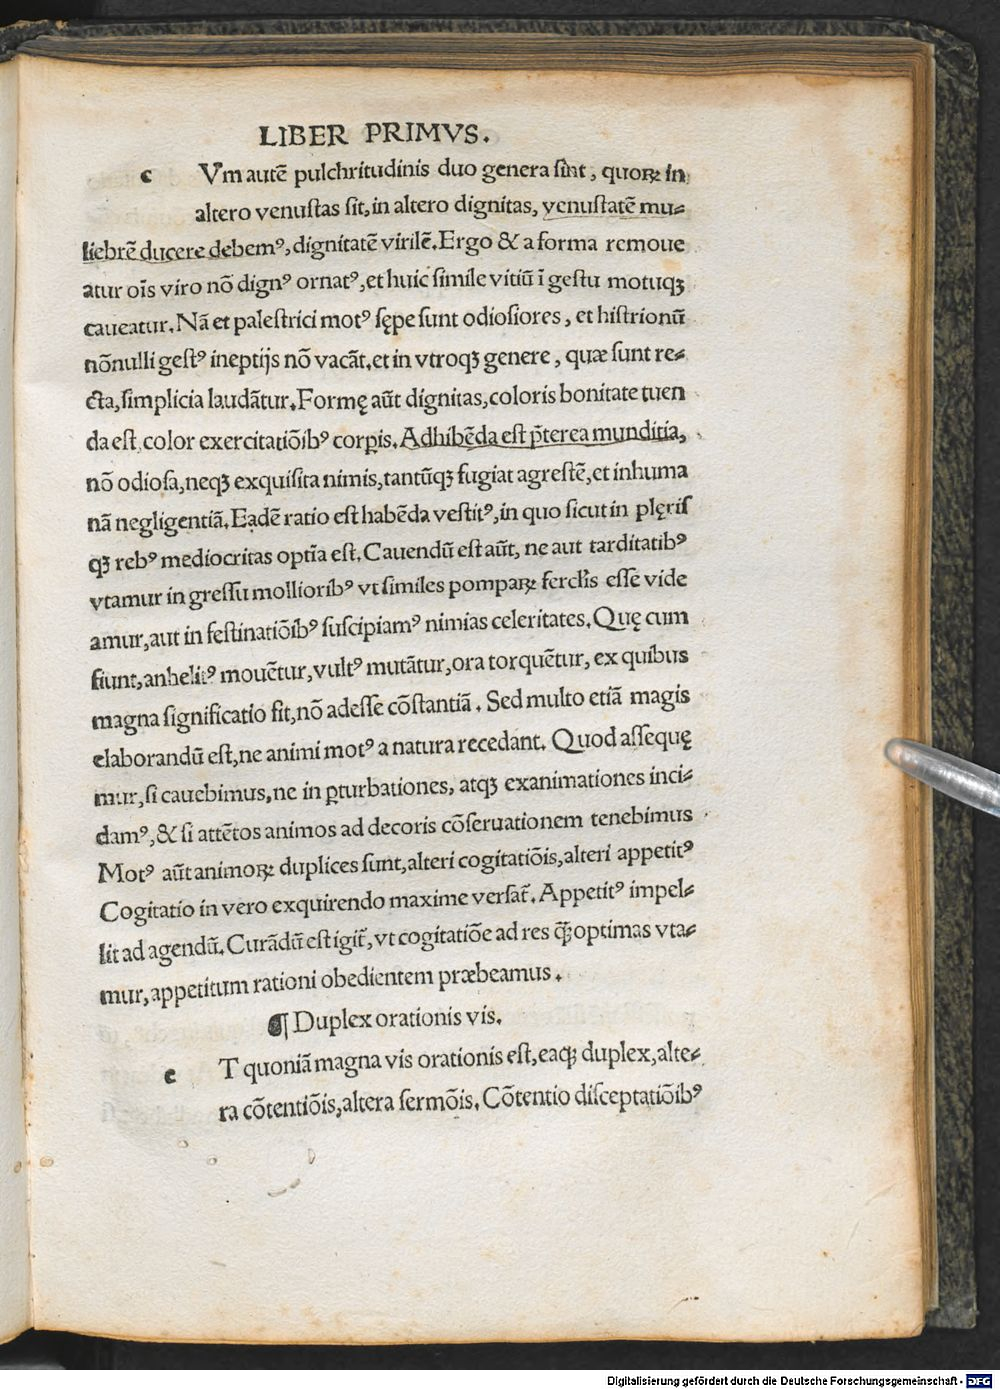 LIBER PRIMVS.
c Vm autē pulchritudinis duo genera ſint, quoꝝ in
altero venuſtas ſit, in altero dignitas, venuſtatē mu⸗
liebrē ducere debemꝰ, dignitatē virilē. Ergo & a forma remoue
atur oīs viro nō dignꝰ ornatꝰ, et huic ſimile vitiū ī geſtu motuqꝫ
caueatur. Nā et paleſtrici motꝰ ſępe ſunt odioſiores, et hiſtrionū
nōnulli geſtꝰ ineptijs nō vacāt, et in vtroqꝫ genere, quæ ſunt re⸗
cta, ſimplicia laudātur. Formę aūt dignitas, coloris bonitate tuen
da eſt, color exercitatiōibꝰ corꝑis. Adhibēda eſt p̄terea munditia,
nō odioſa, neqꝫ exquiſita nimis, tantūqꝫ fugiat agreſtē, et inhuma
nā negligentiā. Eadē ratio eſt habēda veſtitꝰ, in quo ſicut in plęriſ
qꝫ rebꝰ mediocritas optīa eſt. Cauendū eſt aūt, ne aut tarditatibꝰ
vtamur in greſſu mollioribꝰ vt ſimiles pomparꝝ ferclīs eſſe vide
amur, aut in feſtinatiōibꝰ ſuſcipiamꝰ nimias celeritates. Quę cum
fiunt, anhelitꝰ mouētur, vultꝰ mutātur, ora torquētur, ex quibus
magna ſignificatio fit, nō adeſſe cōſtantiā. Sed multo etiā magis
elaborandū eſt, ne animi motꝰ a natura recedant. Quod aſſequę
mur, ſi cauebimus, ne in ꝑturbationes, atqꝫ exanimationes inci⸗
damꝰ, & ſi attētos animos ad decoris cōſeruationem tenebimus
Motꝰ aūt animoꝝ duplices ſunt, alteri cogitatiōis, alteri appetitꝰ
Cogitatio in vero exquirendo maxime verſat̄. Appetitꝰ impel⸗
lit ad agendū. Curādū eſt igit̄, vt cogitatiōe ad res ꝙ̄ optimas vta⸗
mur, appetitum rationi obedientem præbeamus.
¶ Duplex orationis vis.
e T quoniā magna vis orationis eſt, eaqꝫ duplex, alte⸗
ra cōtentiōis, altera ſermōis. Cōtentio diſceptatiōibꝰ
Digitalisierung gefördert durch die Deutsche Forschungsgemeinschaft - DFG